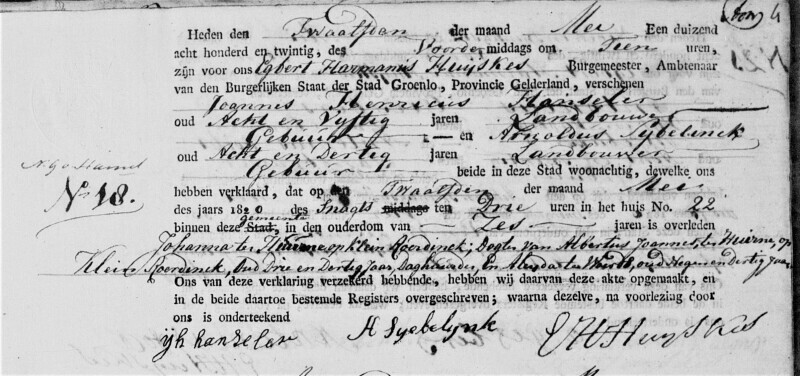 Heden den Twaalfden der maand Mei Een duizend
acht honderd en twintig, des Voorde middags om Tien uren,
zijn voor ons Egbert Harmanis Huijskes Burgemeester, Ambtenaar
van den Burgerlijken Staat der Stad Groenlo, Provincie Gelderland, verschenen
Joannes Henricus Hanseler
oud Acht en Vijftig jaren Landbouwer
Gebuur en Arnoldus Sijbelinck
oud Acht en Dertig jaren Landbouwer
Gebuur beide in deze Stad woonachtig, dewelke ons
hebben verklaard, dat op den Twaalfden der maand Mei
No 18.
des jaars 1820 des Snagts middags ten Drie uren in het huis No. 22
gemeente
binnen deze Stad, in den ouderdom van Zes jaren is overleden
Johanna ter op klein Roordinck; Dogter van Albertus Joannes ter Heurne, op
Klein Roordinck, Oud Drie en Dertig jaar, Daghuurder, En Aleida ter oud Negen en dertig Jaar
Ons van deze verklaring verzekerd hebbende, hebben wij daarvan deze akte opgemaakt, en
in de beide daartoe bestemde Registers overgeschreven; waarna dezelve, na voorlezing door
ons is onderteekend
ijh hanzeler A Syebelynk EHHuyskes